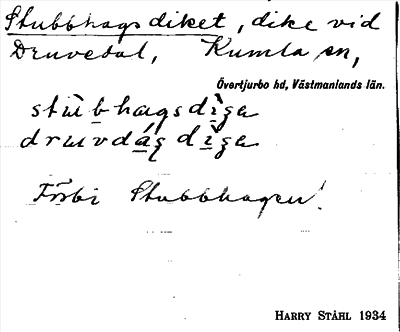 Stubbhagsdiket, dike vid
Druvedal, Kumla sn,
Övertjurbo hd, Västmanlands län.
stùbhagsdìga
druvdág dìga
Förbi Stubbhagen!
HARRY STÅHL 1934